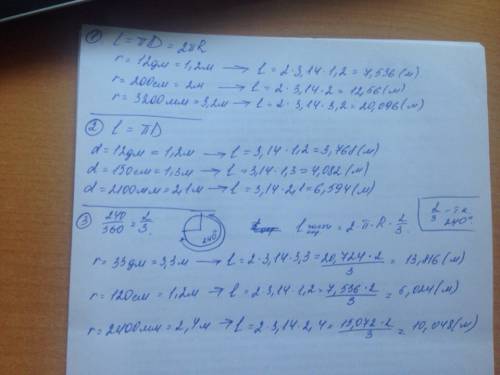 ① l = πD = 2πR
r = 12дм = 1,2м → l = 2·3,14·1,2 = 7,536 (м)
r = 200см = 2м → l = 2·3,14·2 = 12,56 (м)
r = 3200мм = 3,2м → l = 2·3,14·3,2 = 20,096 (м)
② l = πD
d = 12дм = 1,2м → l = 3,14·1,2 = 3,768 (м)
d = 130см = 1,3м → l = 3,14·1,3 = 4,082 (м)
d = 2100мм = 2,1м → l = 3,14·2,1 = 6,594 (м)
③ 240/360 = 2/3. 240° l = 2·π·R·2/3.
2/3 240°
r = 33дм = 3,3м → l = 2·3,14·3,3 = 20,724·2/3 = 13,816 (м)
r = 120см = 1,2м → l = 2·3,14·1,2 = 7,536·2/3 = 5,024 (м)
r = 2400мм = 2,4м → l = 2·3,14·2,4 = 15,072·2/3 = 10,048 (м)